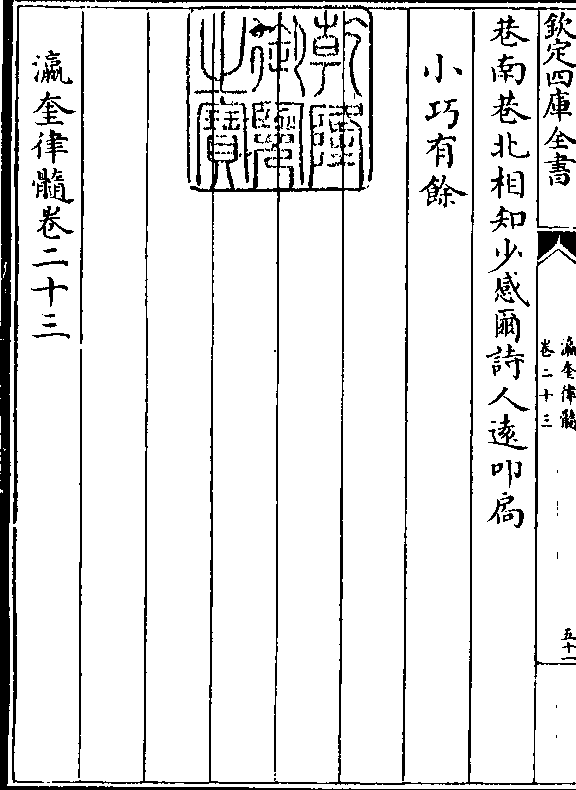 欽定四庫全書
瀛奎律髓
卷二十三
五十一
巷南巷北相知少感爾詩人逺叩扃
小巧有餘
乾隆御覽之寶
瀛奎律髓卷二十三